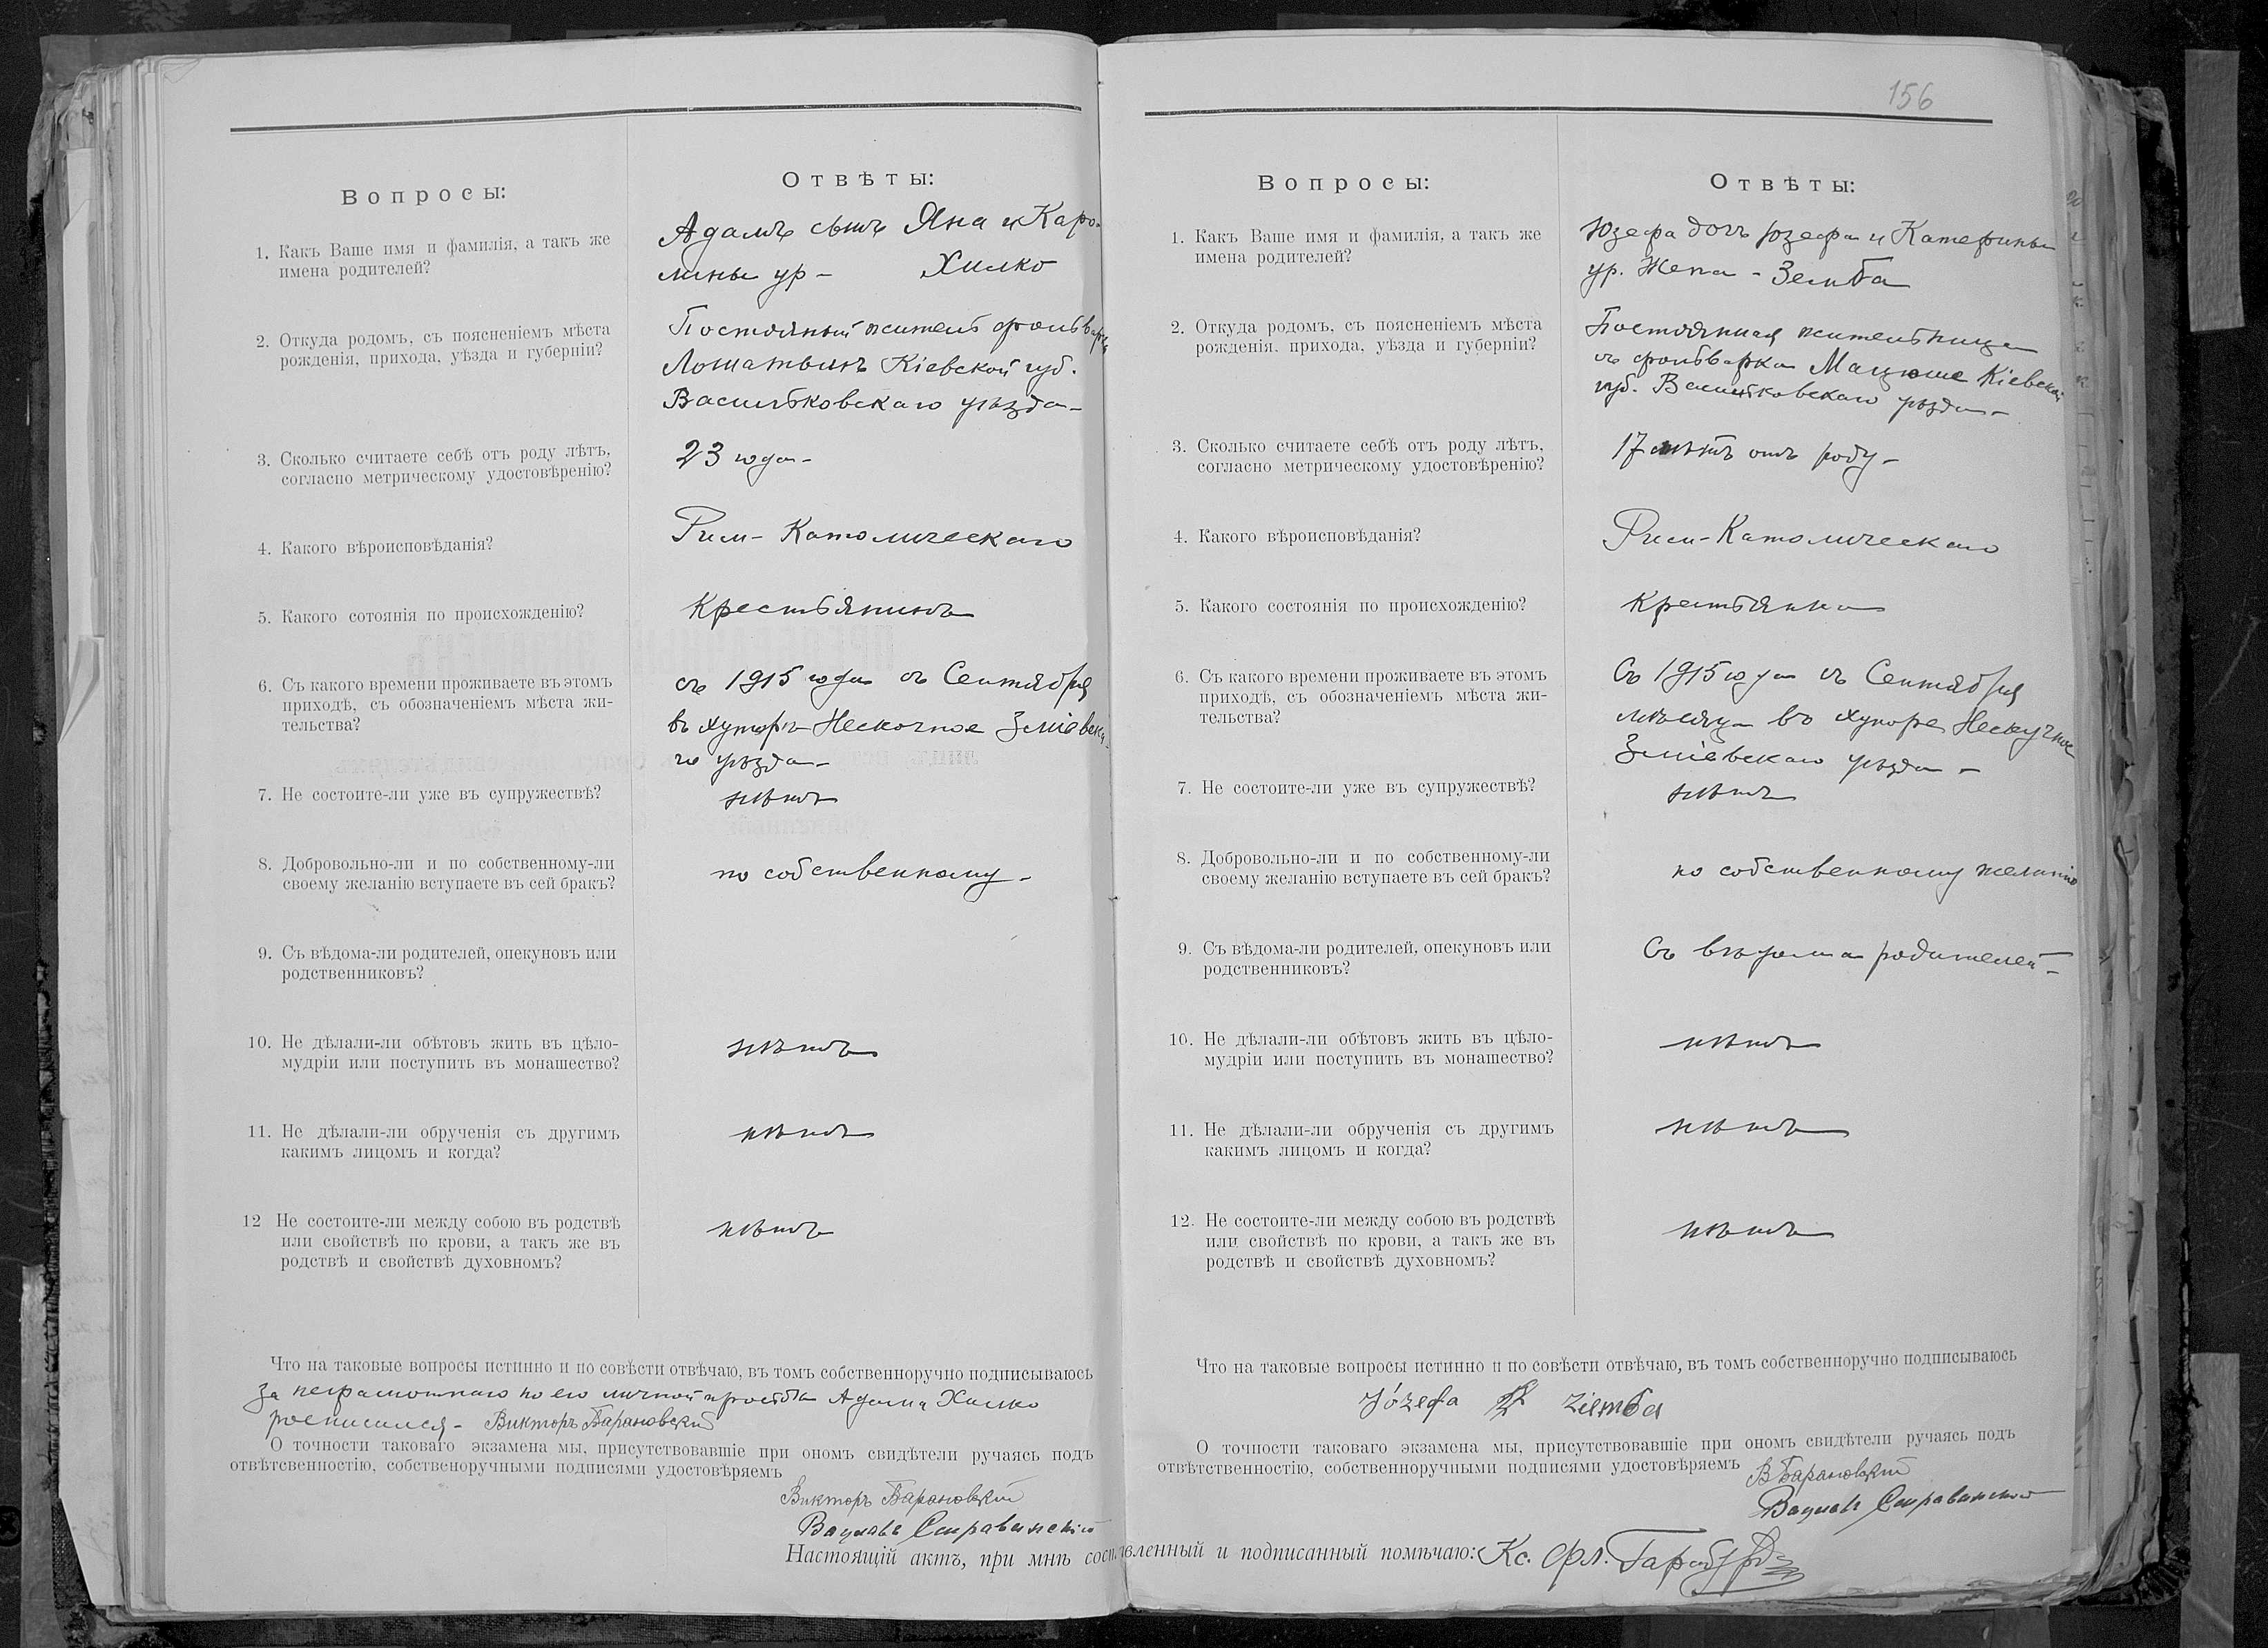 Вопросы:
Отвѣты:
1. Какъ Ваше имя и фамилія, а такъ же
имена родителей?
Адамъ сынъ Яна и Каро-
лины ур - Хилко
2. Откуда родомъ, съ поясненіемъ мѣста
рожденія, прихода, уѣзда и губерніи?
Постояный житель фольварка
Кіевской губ.
Васильковскаго уѣзда -
3. Сколько считаете себѣ отъ роду лѣтъ,
согласно метрическому удостовѣренію?
23 года -
4. Какого вѣроисповѣданія?
Рим - Католическаго
5. Какого сотоянія по происхожденію?
Крестьянинъ
6. Съ какого времени проживаете въ этомъ
приходѣ, съ обозначеніемъ мѣста жи-
тельства?
съ 1915 года съ Сентября
въ хуторѣ Нескочное Зміевска-
го уѣзда -
7. Не состоите-ли уже въ супружествѣ?
нѣтъ
8. Добровольно-ли и по собственному-ли
своему желанію вступаете въ сей бракъ?
по собственному -
9. Съ вѣдома-ли родителей, опекуновъ или
родственниковъ?
10. Не дѣлали-ли обѣтовъ жить въ цѣло-
мудріи или поступить въ монашество?
нѣтъ
11. Не дѣлали-ли обрученія съ другимъ
какимъ лицомъ и когда?
нѣтъ
12 Не состоите-ли между собою въ родствѣ
или свойствѣ по крови, а такъ же въ
родствѣ и свойствѣ духовномъ?
нѣтъ
Что на таковые вопросы истинно и по совѣсти отвѣчаю, въ томъ собственноручно подписываюсь
За неграмотнаго по его личной просьбѣ Адама Хилко
росписился - Викторъ Барановскій
О точности таковаго экзамена мы, присутствовавшіе при ономъ свидѣтели ручаясь подъ
отвѣтсвенностію, собственоручными подписями удостовѣряемъ
Викторъ Барановскій
Вацлавъ
156
Вопросы:
Отвѣты:
1. Какъ Ваше имя и фамилія, а такъ же
имена родителей?
Юзефа дочь Юзефа и Катерины
ур. Жепа - Земба
2. Откуда родомъ, съ поясненіемъ мѣста
рожденія. прихода, уѣзда и губерніи?
Постоянная жительница
съ фольварка Мацюше Кіевской
губ. Васильковскаго уѣзда -
3. Сколько считаете себѣ отъ роду лѣтъ,
согласно метрическому удостовѣренію?
17 лѣтъ отъ роду -
4. Какого вѣроисповѣданія?
Рим - Католическаго
5. Какого состоянія по происхожденію?
Крестьянка
6. Съ какого времени проживаете въ этомъ
приходѣ, съ обозначеніемъ мѣста жи-
тельства?
Съ 1915 года съ Сентября
мѣсяца въ хуторе Нескучное
Зміевскаго уѣзда -
7. Не состоите-ли уже въ супружествѣ?
нѣтъ
8. Добровольно-ли и по собственному-ли
своему желанію вступаете въ сей бракъ?
по собственному желанію
9. Съ вѣдома-ли родителей, опекуновъ или
родственниковъ?
Съ вѣдома родителей -
10. Не дѣлали-ли обѣтовъ жить въ цѣло-
мудріи или поступить въ монашество?
нѣтъ
11. Не дѣлали-ли обрученія съ другимъ
какимъ лицомъ и когда?
нѣтъ
12. Не состоите-ли между собою въ родствѣ
или свойствѣ по крови, а такъ же въ
родствѣ и свойствѣ духовномъ?
нѣтъ
Что на таковые вопросы истинно и по совѣсти отвѣчаю, въ томъ собственноручно подписываюсь
Józefa Ziemba
О точности таковаго экзамена мы, присутствовавшіе при ономъ свидѣтели ручаясь подъ
отвѣтственностію, собственноручными подписями удостовѣряемъ
В Барановскій
Вацлавъ
Настоящій актъ, при мнѣ составленный и подписанный помѣчаю: Кс. Фл.